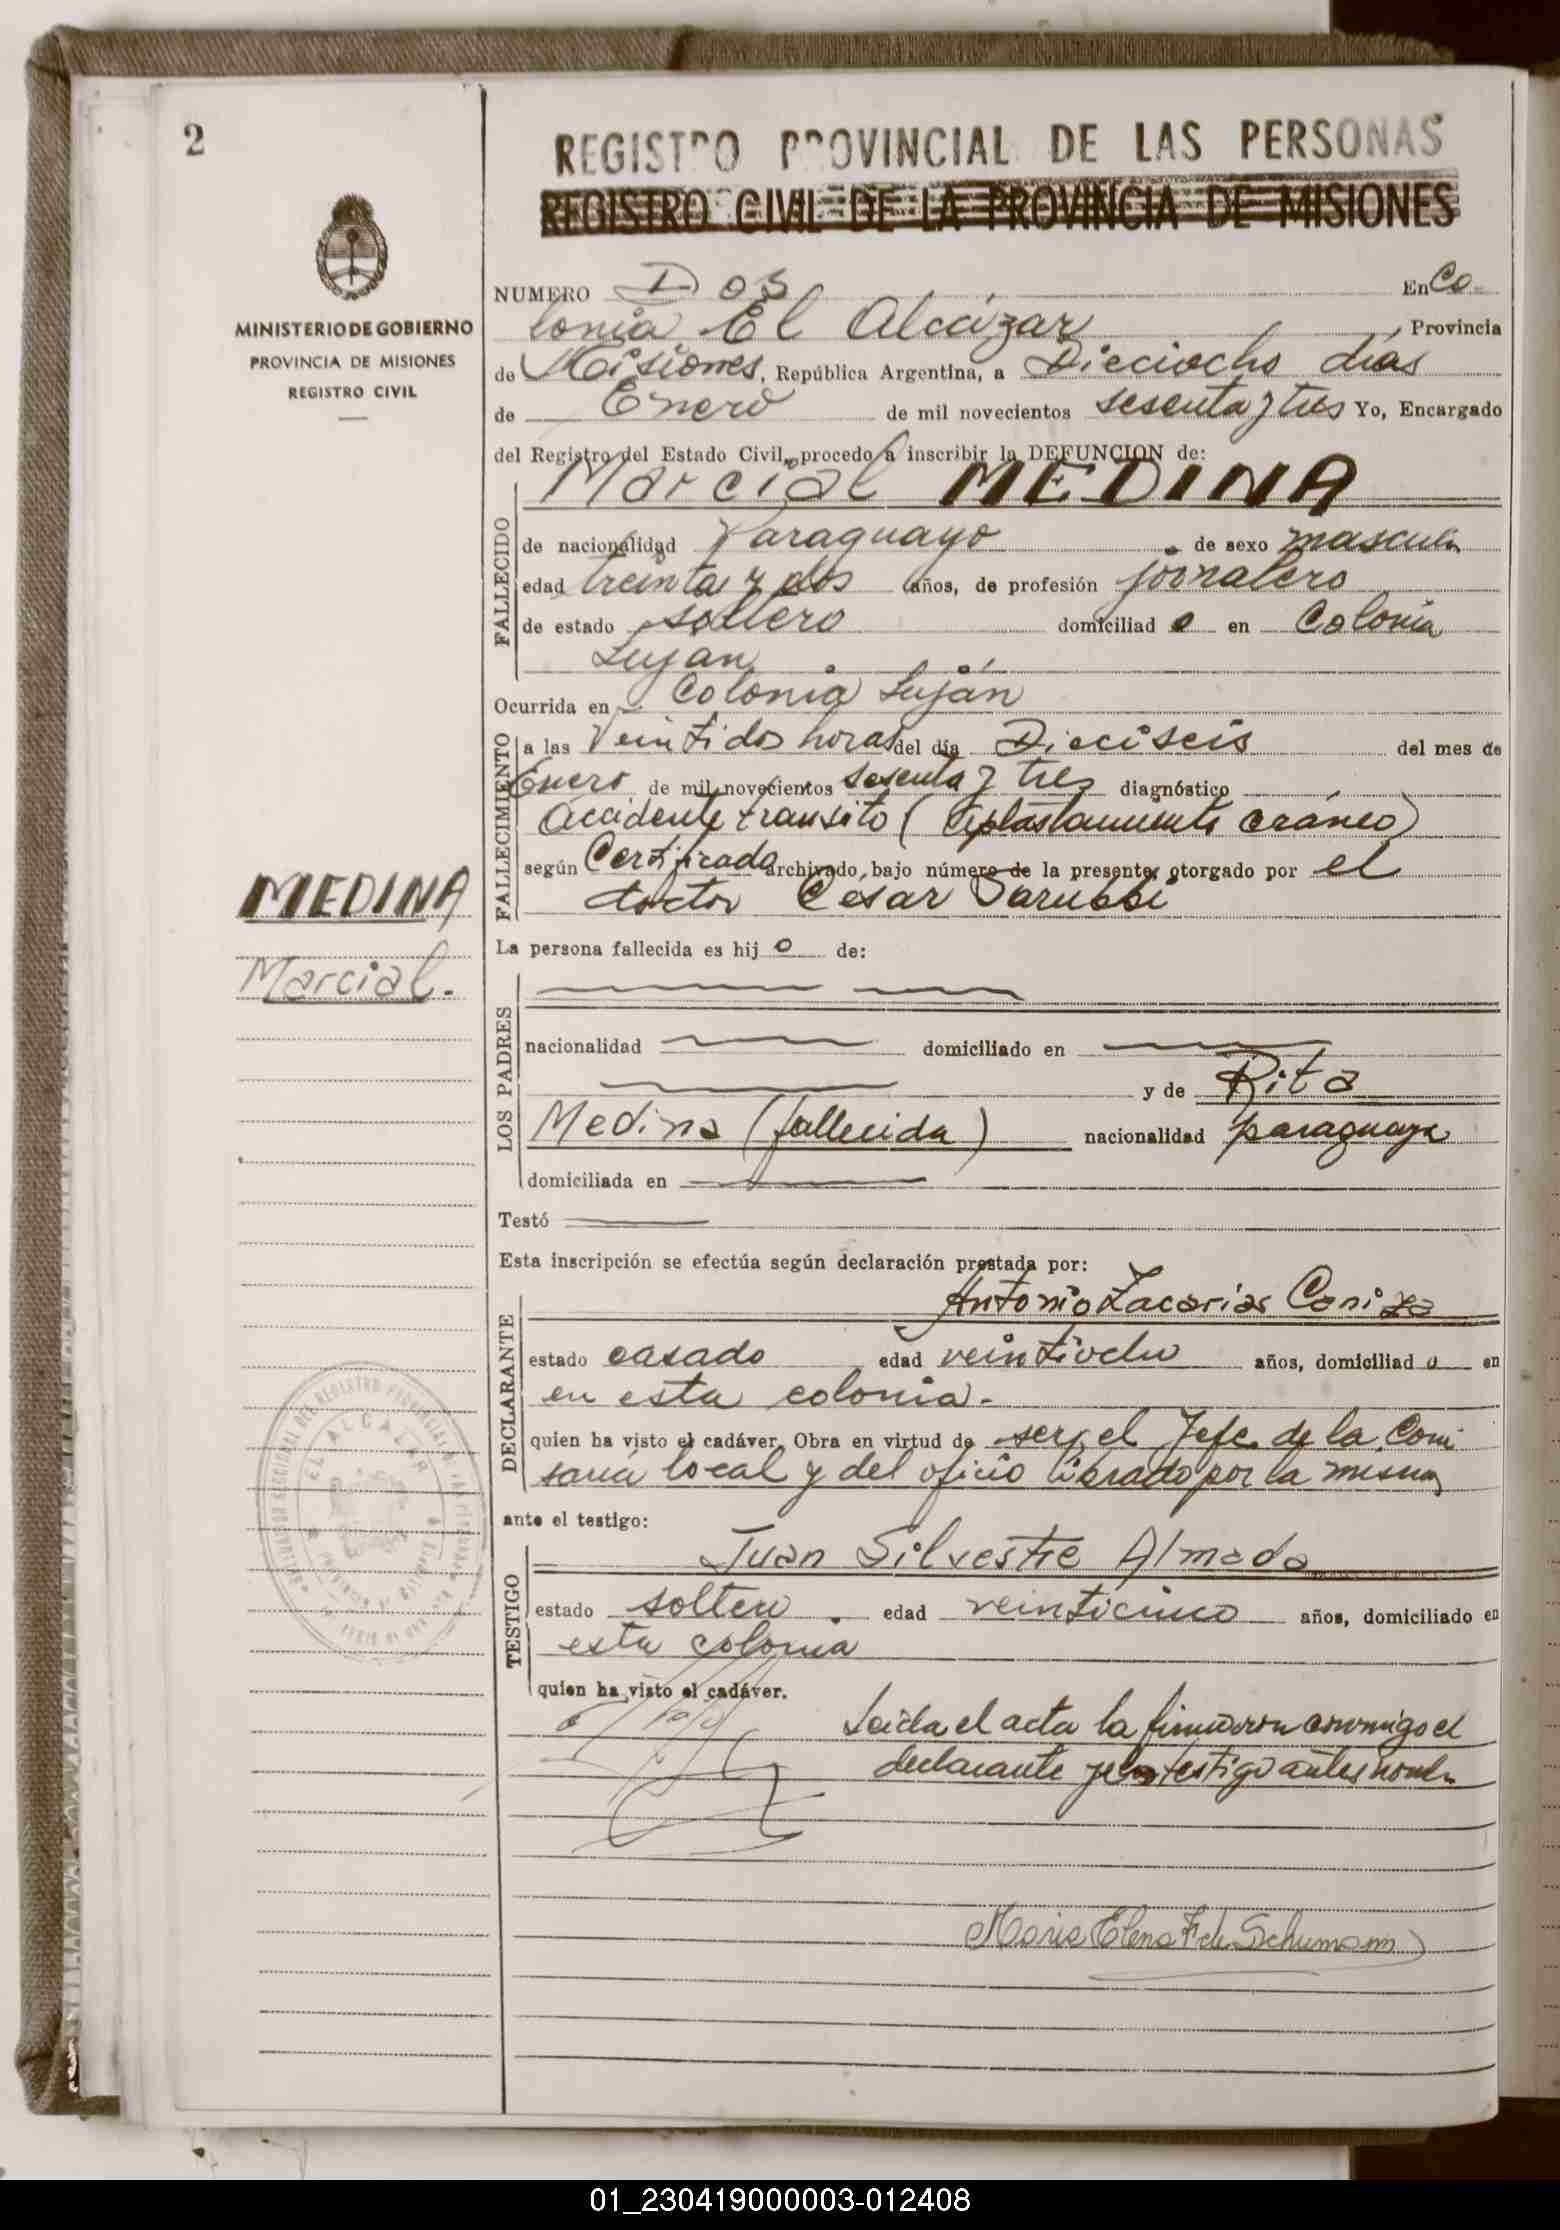 2
REGISTRO PROVINCIAL DE LAS PERSONAS
REGISTRO CIVIL DE LA PROVINCIA DE MISIONES
MINISTERIO DE GOBIERNO
PROVINCIA DE MISIONES
REGISTRO CIVIL
NUMERO Dos En Co
lonia El Alcázar, Provincia
de Misiones, República Argentina, a Dieciocho días
de Enero de mil novecientos sesenta y tres Yo, Encargado
del Registro del Estado Civil, procedo a inscribir la DEFUNCION de:
Marcial MEDINA
FALLECIDO
de nacionalidad Paraguayo de sexo mascul
edad treinta y dos años, de profesión jornalero
de estado soltero domiciliad o en Colonia
Luján
Ocurrida en Colonia Luján
FALLECIMIENTO
a las Veintidos horas del día Dieciseis del mes de
Enero de mil novecientos sesenta y tres diagnóstico
Accidente transito (aplastamiento cráneo)
según Certificado archivado bajo número de la presente, otorgado por el
doctor César Sarubbi
MEDINA
Marcial.
La persona fallecida es hij o de:
LOS PADRES
nacionalidad domiciliado en
y de Rita
Medina (fallecida) nacionalidad paraguaya
domiciliada en
Testó
Esta inscripción se efectúa según declaración prestada por:
DECLARANTE
Antonio Zacarias Caniza
estado casado edad veintiocho años, domiciliad o en
en esta colonia.-
quien ha visto el cadáver. Obra en virtud de ser el Jefe de la Comi
saria local y del oficio librado por la misma
ante el testigo:
TESTIGO
Juan Silvestre Almada
estado soltero. edad veinticinco años, domiciliado en
esta colonia
quien ha visto el cadáver.
Leida el acta la firmaron conmigo el
declarante y el testigo antes nombr
EL ALCAZAR
Maria Elena F. de Schumann
01_230419000003-012408